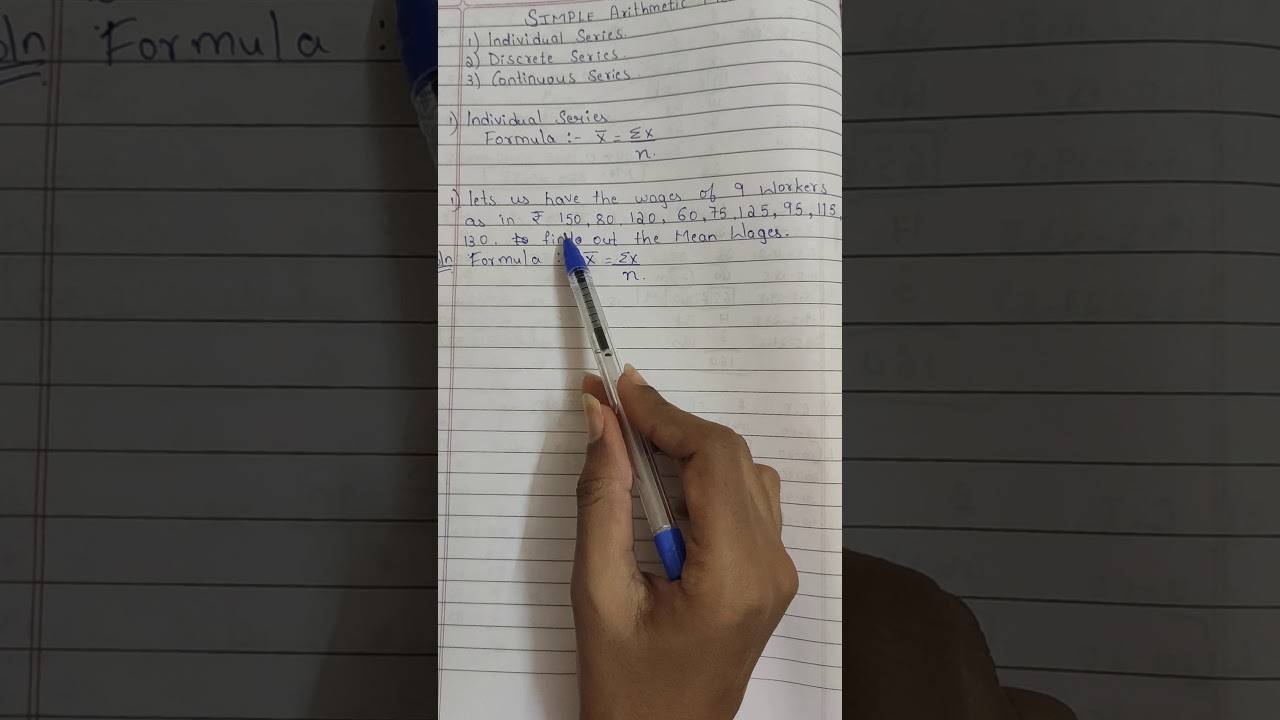 SIMPLE Arithmetic
1) Individual Series.
2) Discrete Series.
3) Continuous Series.
1) Individual Series
Formula :- x̅ = Σx
n.
i) lets us have the wages of 9 Workers
as in ₹ 150, 80, 120, 60, 75, 125, 95, 115,
130. to find out the Mean Wages.
oln Formula : x̅ = Σx
n.
oln Formula :